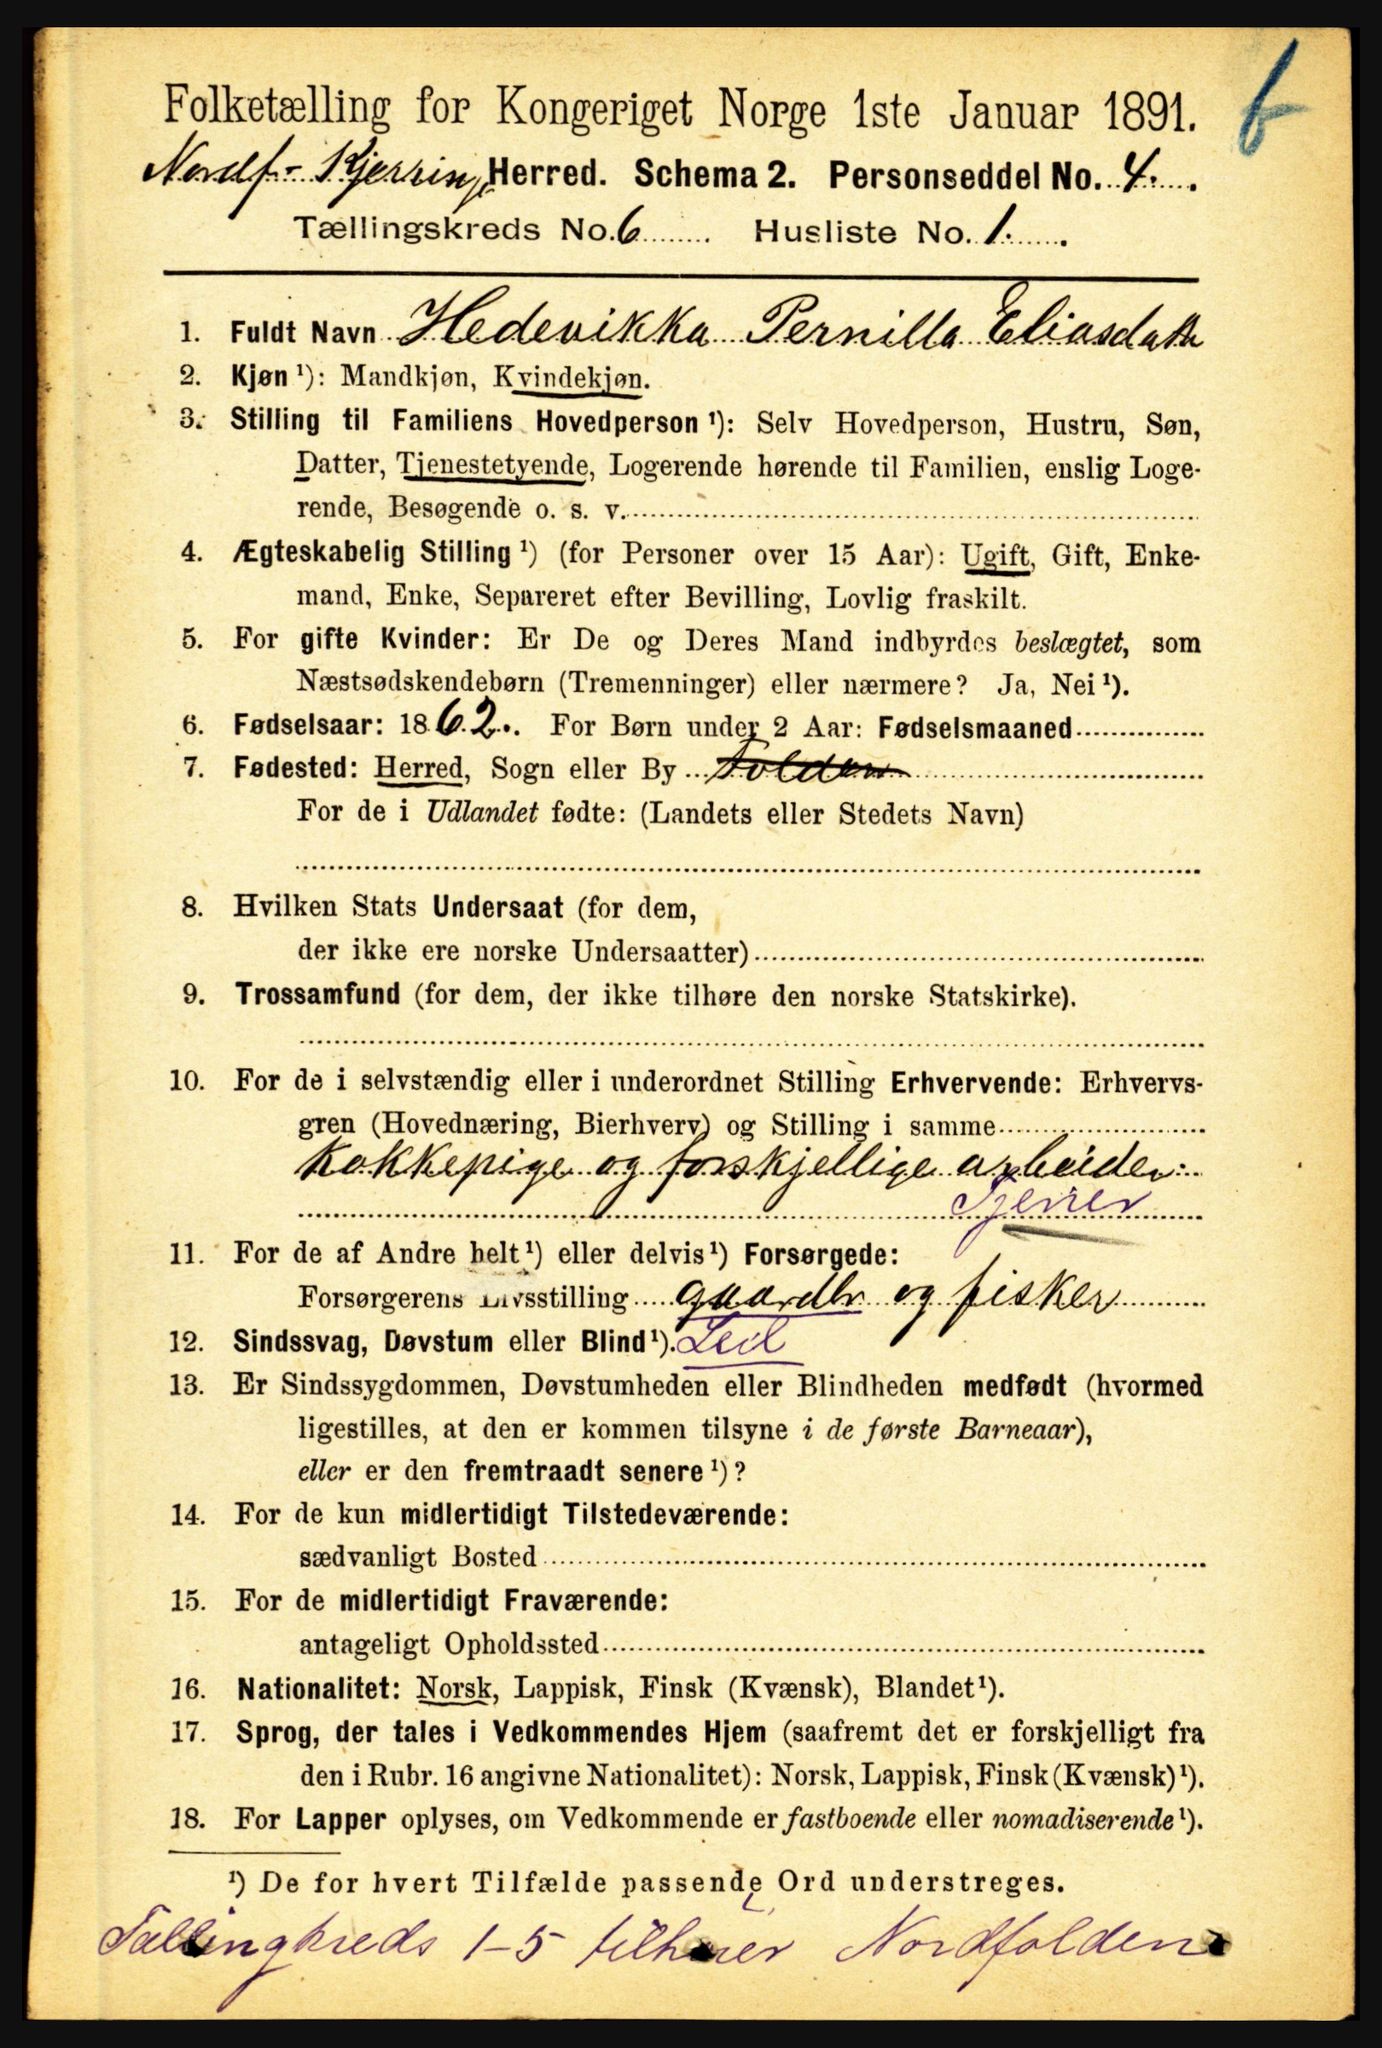 Folketælling for Kongeriget Norge 1ste Januar 1891.
6
Nordf- Kjerringø Herred. Schema 2. Personseddel No. 4.
Tællingskreds No. 6 Husliste No. 1.
1. Fuldt Navn Hedevikka Pernilla Eliasdattr
2. Kjøn ¹): Mandkjøn, Kvindekjøn.
3. Stilling til Familiens Hovedperson ¹): Selv Hovedperson, Hustru, Søn,
Datter, Tjenestetyende, Logerende hørende til Familien, enslig Loge-
rende, Besøgende o. s. v.
4. Ægteskabelig Stilling ¹) (for Personer over 15 Aar): Ugift, Gift, Enke-
mand, Enke, Separeret efter Bevilling, Lovlig fraskilt.
5. For gifte Kvinder: Er De og Deres Mand indbyrdes beslægtet, som
Næstsødskendebørn (Tremenninger) eller nærmere? Ja, Nei ¹).
6. Fødselsaar: 1862. For Børn under 2 Aar: Fødselsmaaned
7. Fødested: Herred, Sogn eller By Folden
For de i Udlandet fødte: (Landets eller Stedets Navn)
8. Hvilken Stats Undersaat (for dem,
der ikke ere norske Undersaatter)
9. Trossamfund (for dem, der ikke tilhøre den norske Statskirke).
10. For de i selvstændig eller i underordnet Stilling Erhvervende: Erhvervs-
gren (Hovednæring, Bierhverv) og Stilling i samme
kokkepige og forskjellige arbeider
Tjener
11. For de af Andre helt ¹) eller delvis ¹) Forsørgede:
Forsørgerens Livsstilling gaardbr og fisker
12. Sindssvag, Døvstum eller Blind ¹). Leil
13. Er Sindssygdommen, Døvstumheden eller Blindheden medfødt (hvormed
ligestilles, at den er kommen tilsyne i de første Barneaar),
eller er den fremtraadt senere ¹)?
14. For de kun midlertidigt Tilstedeværende:
sædvanligt Bosted
15. For de midlertidigt Fraværende:
antageligt Opholdssted
16. Nationalitet: Norsk, Lappisk, Finsk (Kvænsk), Blandet ¹).
17. Sprog, der tales i Vedkommendes Hjem (saafremt det er forskjelligt fra
den i Rubr. 16 angivne Nationalitet): Norsk, Lappisk, Finsk (Kvænsk) ¹).
18. For Lapper oplyses, om Vedkommende er fastboende eller nomadiserende ¹).
¹) De for hvert Tilfælde passende Ord understreges.
Tællingkreds 1-5 tilhører Nordfolden